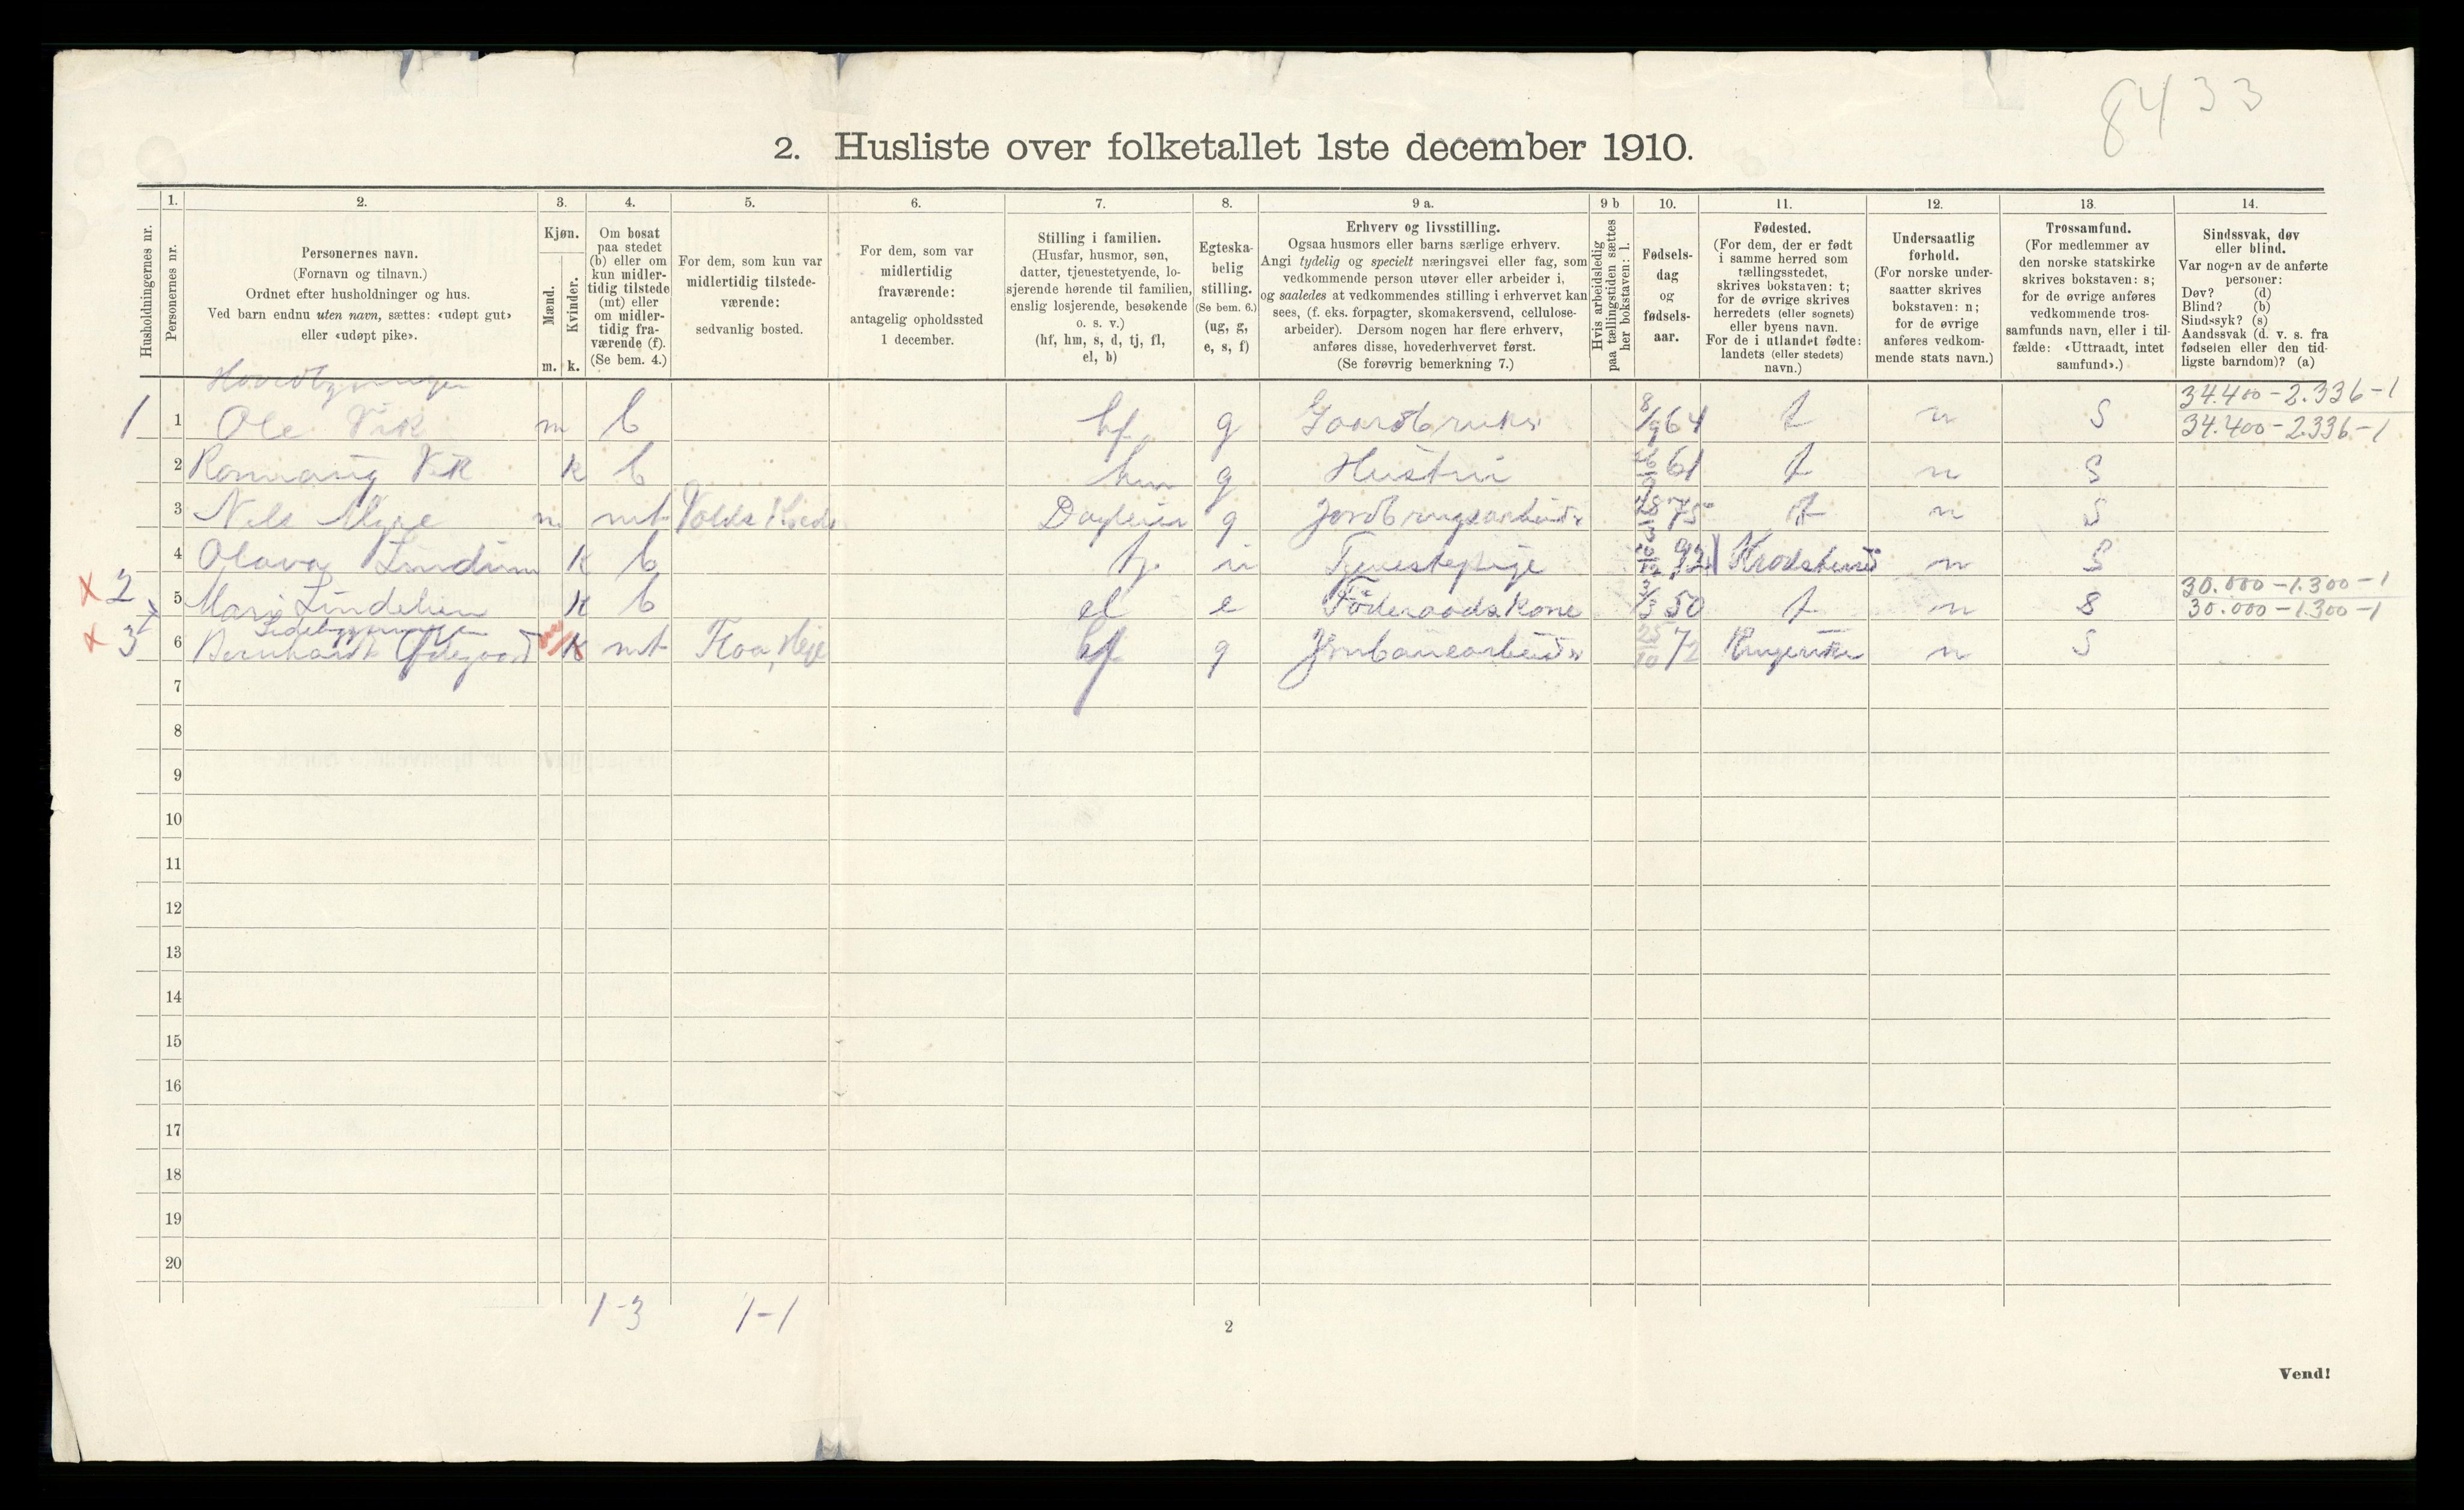 8433
2. Husliste over folketallet 1ste december 1910.
Husholdningernes nr.
1.
Personernes nr.
2.
Personernes navn.
(Fornavn og tilnavn.)
Ordnet efter husholdninger og hus.
Ved barn endnu uten navn, sættes: «udøpt gut»
eller «udøpt pike».
3.
Kjøn.
Mænd.
Kvinder.
m. k.
4.
Om bosat
paa stedet
(b) eller om
kun midler-
tidig tilstede
(mt) eller
om midler-
tidig fra-
værende (f).
(Se bem. 4.)
5.
For dem, som kun var
midlertidig tilstede-
værende:
sedvanlig bosted.
6.
For dem, som var
midlertidig
fraværende:
antagelig opholdssted
1 december.
7.
Stilling i familien.
(Husfar, husmor, søn,
datter, tjenestetyende, lo-
sjerende hørende til familien,
enslig losjerende, besøkende
o. s. v.)
(hf, hm, s, d, tj, fl,
el, b)
8.
Egteska-
belig
stilling.
(Se bem. 6.)
(ug, g,
e, s, f)
9 a.
Erhverv og livsstilling.
Ogsaa husmors eller barns særlige erhverv.
Angi tydelig og specielt næringsvei eller fag, som
vedkommende person utøver eller arbeider i,
og saaledes at vedkommendes stilling i erhvervet kan
sees, (f. eks. forpagter, skomakersvend, cellulose-
arbeider). Dersom nogen har flere erhverv,
anføres disse, hovederhvervet først.
(Se forøvrig bemerkning 7.)
9 b
Hvis arbeidsledig
paa tællingstiden sættes
her bokstaven: l.
10.
Fødsels-
dag
og
fødsels-
aar.
11.
Fødested.
(For dem, der er født
i samme herred som
tællingsstedet,
skrives bokstaven: t;
for de øvrige skrives
herredets (eller sognets)
eller byens navn.
For de i utlandet fødte:
landets (eller stedets)
navn.)
12.
Undersaatlig
forhold.
(For norske under-
saatter skrives
bokstaven: n;
for de øvrige
anføres vedkom-
mende stats navn.)
13.
Trossamfund.
(For medlemmer av
den norske statskirke
skrives bokstaven: s;
for de øvrige anføres
vedkommende tros-
samfunds navn, eller i til-
fælde: «Uttraadt, intet
samfund».)
14.
Sindssvak, døv
eller blind.
Var nogen av de anførte
personer:
Døv? (d)
Blind? (b)
Sindssyk? (s)
Aandssvak (d. v. s. fra
fødselen eller den tid-
ligste barndom)? (a)
Hovedbygningen 34.400-2.336-1
1 1 Ole Vik m b hf g Gaardbruker 8/9 64 t n S 34.400-2.336-1
2 Vik k b hm g Hustru 61 t n S
3 Nils m mt g Jordbrugsarbeider 75 t n S
4 Olava k b tj Tjenestepige 92 n S
30.000-1.300-1
x 2 5 Mari Lindelien k b el e Föderaadskone 3/3 50 t n S 30.000-1.300-1
Sidebygningen
x 3 6 Bernhardt Ødegaard k mt Flaa, hf g Jernbanearbeider 25/10 72 Ringerike n S
7
8
9
10
11
12
13
14
15
16
17
18
19
20
1-3 1-1
2
Vend!